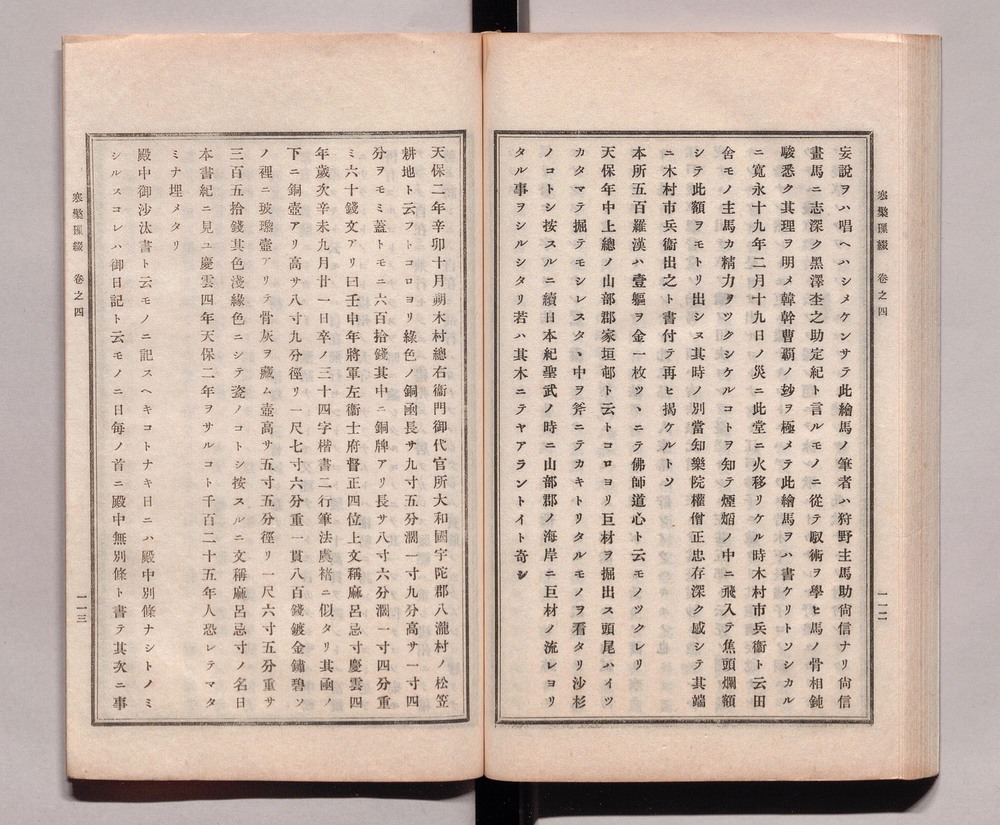 寒檠璅綴 卷之四
一一二
妄說ヲハ唱ヘハシメケンサテ此繪馬ノ筆者ハ狩野主馬助尙信ナリ尙信
畫馬ニ志深ク黑澤杢之助定紀ト言ルモノニ從テ馭術ヲ學ヒ馬ノ骨相鈍
駿悉ク其理ヲ明メ韓幹曹覇ノ玅ヲ極メテ此繪馬ヲハ書ケリトソシカル
ニ寬永十九年二月十九日ノ災ニ此堂ニ火移リケル時木村市兵衞ト云田
舍モノ主馬カ精力ヲツクシケルコトヲ知テ煙焰ノ中ニ飛入テ焦頭爛額
シテ此額ヲモトリ出シヌ其時ノ別當知樂院權僧正忠存深ク感シテ其端
ニ木村市兵衞出之ト書付テ再ヒ揭ケルトソ
本所五百羅漢ハ壹軀ヲ金一枚ツヽニテ佛師道心ト云モノツクレリ
天保年中上總ノ山部郡家垣邨ト云トコロヨリ巨材ヲ掘出ス頭尾ハイツ
カタマテ掘テモシレスタヽ中ヲ斧ニテカキトリタルモノヲ看タリ沙杉
ノコトシ按スルニ續日本紀聖武ノ時ニ山部郡ノ海岸ニ巨材ノ流レヨリ
タル事ヲシルシタリ若ハ其木ニテヤアラントイト奇シ
天保二年辛卯十月朔木村總右衞門御代官所大和國宇陀郡八瀧村ノ松笠
耕地ト云フトコロヨリ綠色ノ銅函長サ九寸五分濶一寸九分高サ一寸四
分ヲモミ蓋トモニ六百拾錢其中ニ銅牌アリ長サ八寸六分濶一寸四分重
ミ六十錢文アリ曰壬申年將軍左衞士府督正四位上文稱麻呂忌寸慶雲四
年歲次辛未九月廿一日卒ノ三十四字楷書二行筆法虞褚ニ似タリ其函ノ
下ニ銅壺アリ高サ八寸九分徑リ一尺七寸六分重一貫八百錢鍍金鏽碧ソ
ノ裡ニ玻瓈壺アリテ骨灰ヲ藏ム壺高サ五寸五分徑リ一尺六寸五分重サ
三百五拾錢其色淺綠色ニシテ瓷ノコトシ按スルニ文稱麻呂忌寸ノ名日
本書紀ニ見ユ慶雲四年天保二年ヲサルコト千百二十五年人恐レテマタ
ミナ埋メタリ
殿中御沙汰書ト云モノニ記スヘキコトナキ日ニハ殿中別條ナシトノミ
シルスコレハ御日記ト云モノニ日每ノ首ニ殿中無別條ト書テ其次ニ事
寒檠璅綴 卷之四
一一三